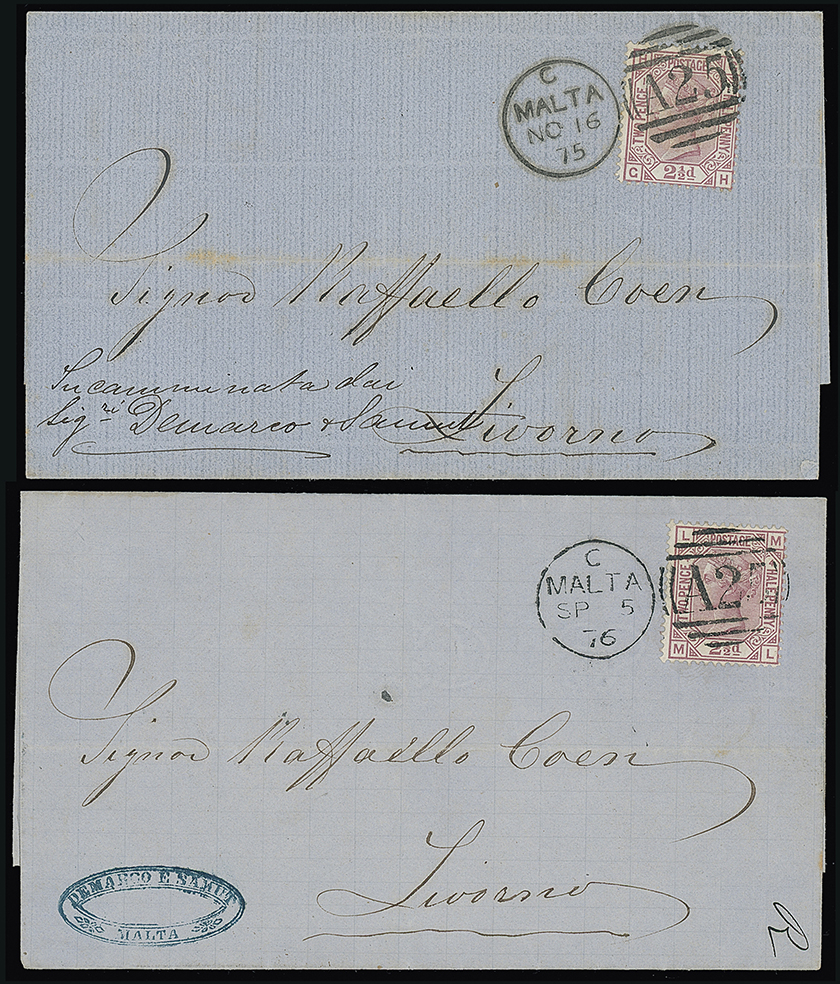 C
MALTA
NO 16
75
POSTAGE
A25
TWO PENCE
PENNY
G 2½d H
Signor Raffaello Coen
Incamminata dai
Sigri Demarco & Samut
Livorno
C
MALTA
SP 5
76
L POSTAGE M
A25
TWO PENCE
HALFPENNY
M 2½d L
Signor Raffaello Coen
Livorno
DEMARCO E SAMUT
MALTA